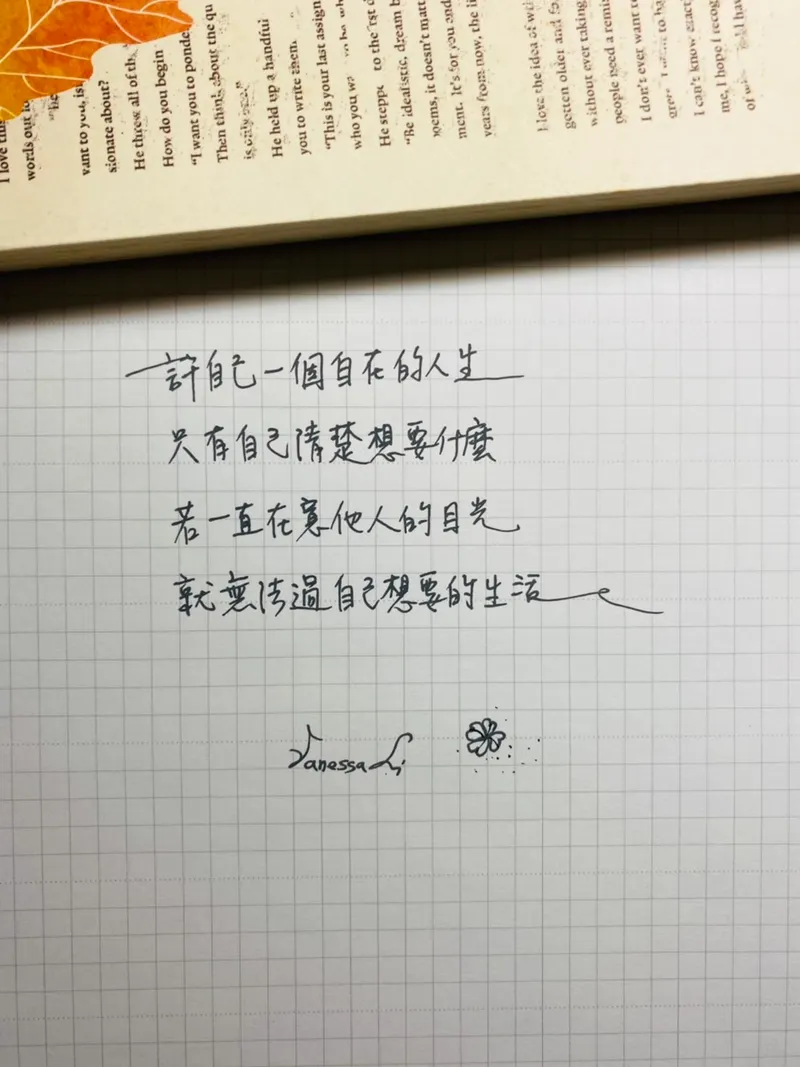 I love thi
words out to
"he
vant to you, is
sionate about?
He threw all of th
How do you begin
"I want you to ponde
Then think about the qu
is only one."
He held up a handful
you to write them.
"This is your last assign
who you
He stepp to the
"Be idealistic, dream b
poems, it doesn't matt
ment. It's for you and
years from now, the li
I love the idea of wri
gotten older and
without ever taking
people need a remi
I don't ever want t
I can't know exact
me, I hope I recog
of
許自己一個自在的人生
只有自己清楚想要什麼
若一直在意他人的目光
就無法過自己想要的生活
Vanessa Li